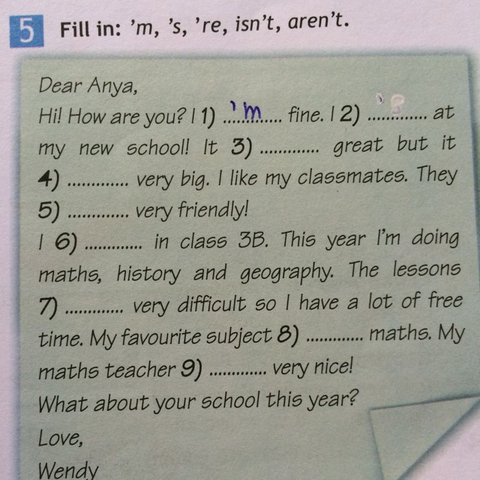 5 Fill in: 'm, 's, 're, isn't, aren't.
Dear Anya,
Hi! How are you? I 1) ....'m.... fine. I 2) .............. at
my new school! It 3) ............. great but it
4) ............. very big. I like my classmates. They
5) ............. very friendly!
I 6) ............. in class 3B. This year I'm doing
maths, history and geography. The lessons
7) ............. very difficult so I have a lot of free
time. My favourite subject 8) ............. maths. My
maths teacher 9) ............. very nice!
What about your school this year?
Love,
Wendy